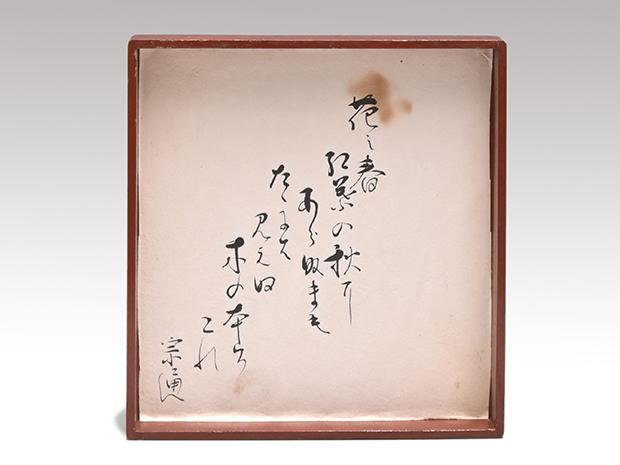 花之春
紅葉の秋に
あらぬまも
たゝには
見えぬ
木の本
これ
宗